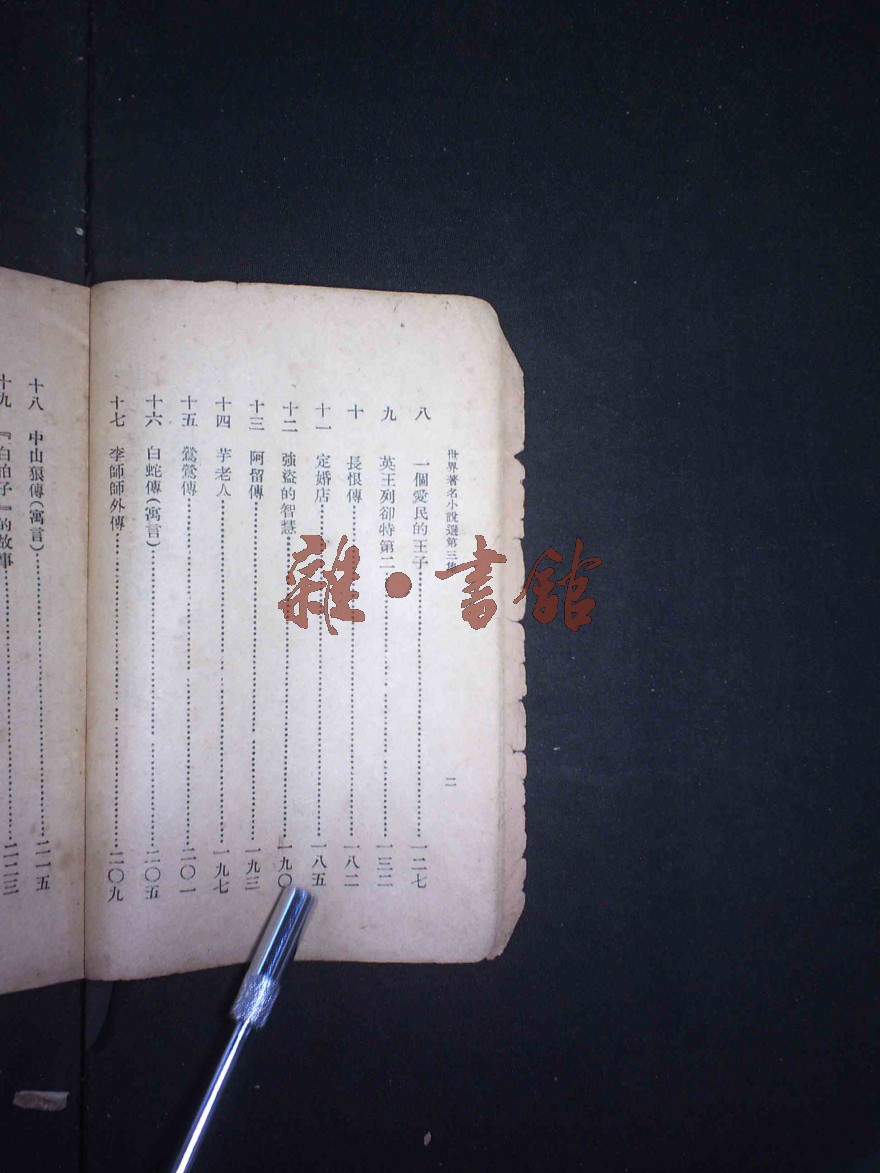 世界著名小說選第三集
二
八 一個愛民的王子 一二七
九 英王列卻特第二 一三二
十 長恨傳 一八二
十一 定婚店 一八五
十二 強盜的智慧 一九〇
十三 阿留傳 一九三
十四 芋老人 一九七
十五 鶯鶯傳 二〇一
十六 白蛇傳(寓言) 二〇五
十七 李師師外傳 二〇九
十八 中山狼傳(寓言) 二一五
十九 『白拍子』的故事 二二三
雜·書館